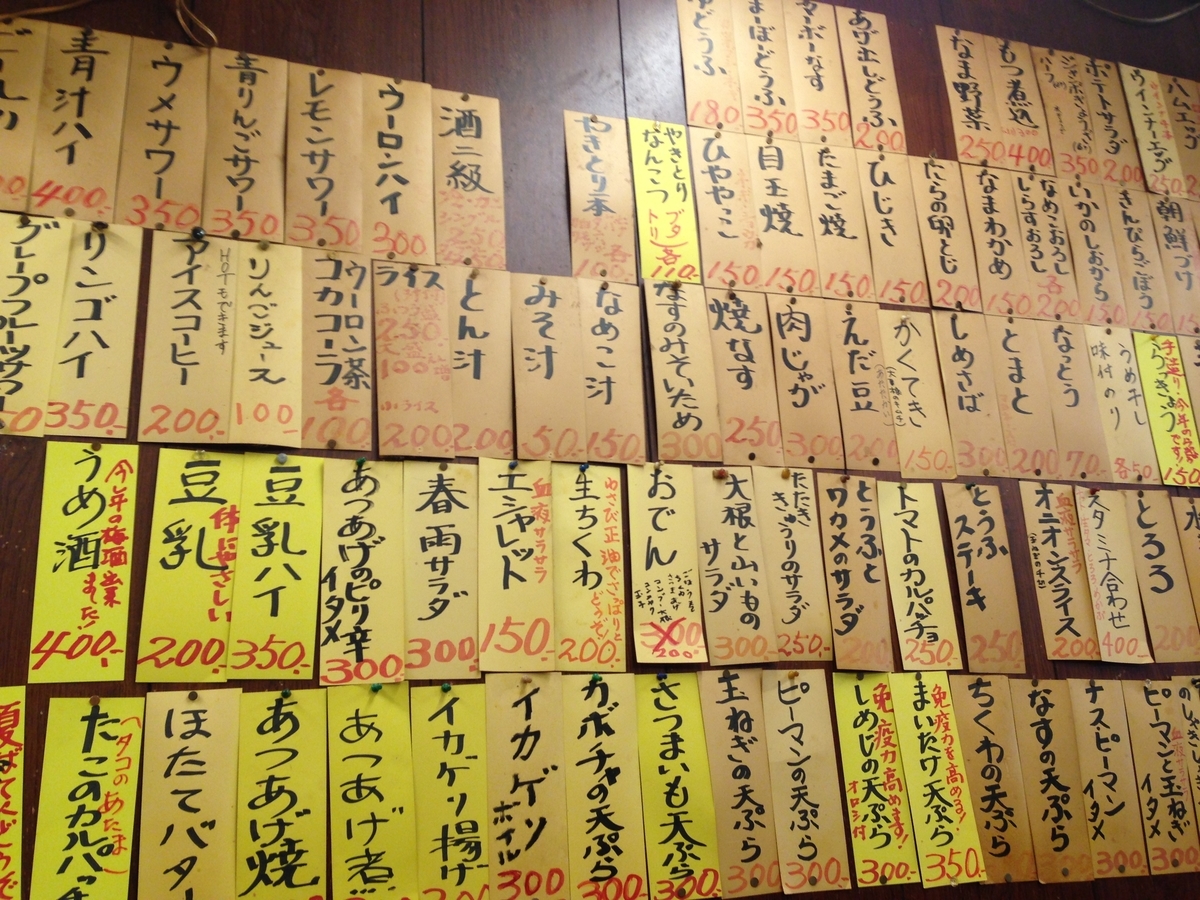 青汁ハイ 400-
ウメサワー 350
青りんごサワー 350
レモンサワー 350
ウーロンハイ 300
酒二級
やきとり一本
やきとり なんこつ (ブタ トリ) 各 110-
ゆどうふ 180
まーぼーどうふ 350
マーボーなす 350
あげ出しどうふ 200
なま野菜 250
もつ煮込 400
ポテトサラダ 200
ウインナーエッグ 250
ハムエッグ
ひややっこ 150
目玉焼 150
たまご焼 150
ひじき 150
たらの卵とじ 200
なまわかめ 150
しらすおろし
なめこおろし 各 200
いかのしおから 150
きんぴらごぼう 150
朝鮮づけ
グレープフルーツサワー
リンゴハイ 350-
アイスコーヒー 200-
HOTもできます
りんごジュース 100
ウーロン茶
コカコーラ 各 100-
ライス 200
とん汁 200
みそ汁 50-
なめこ汁 150
なすのみそいため 300
焼なす 250
肉じゃが 300
えだ豆 200
かくてき 150-
しめさば 300
とまと 200
なっとう 70-
味付のり
うめ干し 各50
らっきょう 150
うめ酒 400-
豆乳 体にやさしい 200-
豆乳ハイ 350-
あつあげのピリ辛イタメ 300
春雨サラダ 300
エシャレット 血液サラサラ 150-
生ちくわ 200-
おでん 200-
大根と山いものサラダ 300
たたききゅうりのサラダ 250-
とうふとワカメのサラダ 200
トマトのカルパッチョ 250-
とうふステーキ 250
オニオンスライス 血液サラサラ 200
スタミナ合わせ 400-
とろろ 200
たこのカルパッチ
(タコのあたま)
ほたてバター
あつあげ焼
あつあげ煮
イカゲソ揚げ
イカゲソボイル 300
カボチャの天ぷら 300
さつまいも天ぷら 300-
玉ねぎの天ぷら 300
ピーマンの天ぷら 300-
しめじの天ぷら 免疫力高めます! オロシ付 300-
まいたけ天ぷら 免疫力を高める! 350-
ちくわの天ぷら
なすの天ぷら 300
ナスピーマンイタメ 300
ピーマンと玉ねぎイタメ 300